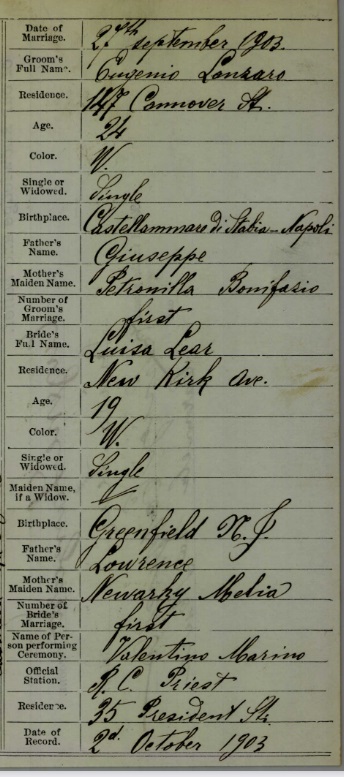 Date of Marriage. 27th september 1903.
Groom's Full Name. Eugenio Lonzaro
Residence. 147 Connover St.
Age. 24
Color. W.
Single or Widowed. Single
Birthplace. Castellammare di Stabia - Napoli
Father's Name. Giuseppe
Mother's Maiden Name. Petronilla Bonifazio
Number of Groom's Marriage. first
Bride's Full Name. Luisa Lear
Residence. New Kirk Ave.
Age. 19
Color. W.
Single or Widowed. Single
Maiden Name, if a Widow.
Birthplace. Greenfield N. J.
Father's Name. Lowrence
Mother's Maiden Name. Newarky Melia
Number of Bride's Marriage. first
Name of Person performing Ceremony. Valentino Marino
Official Station. R. C. Priest
Residence. 35 President St.
Date of Record. 2d. October 1903